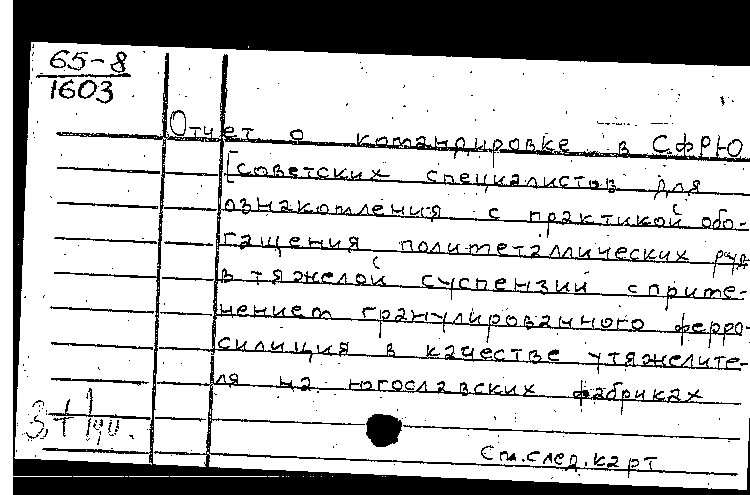 65-8
1603
Отчет о командировке в СФРЮ
[советских специалистов для
ознакомления с практикой обо-
гащения полиметаллических руд
в тяжелой суспензии с приме-
нением гранулированного ферро-
силиция в качестве утяжелите-
ля на югославских фабриках
См.след.карт